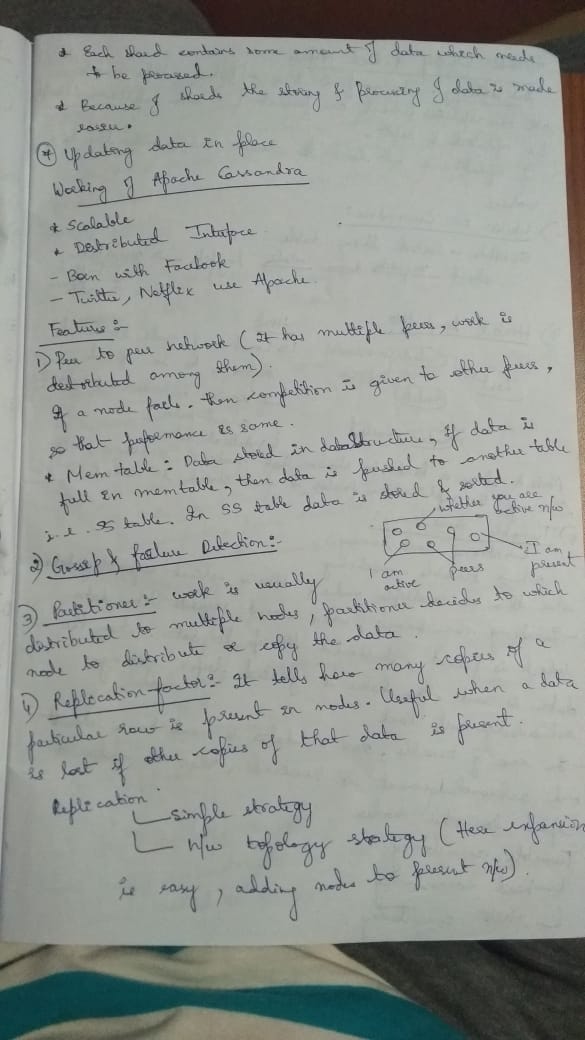 * Each shard contains some amount of data which needs
to be processed.
* Because of shards the storing & processing of data is made
easier.
* Updating data in place
Working of Apache Cassandra
* Scalable
* Distributed Interface
- Born with Facebook
- Twitter, Netflix use Apache.
Features :-
1) Peer to peer network (It has multiple peers, work is
distributed among them).
If a node fails. then competition is given to other peers,
so that performance is same.
* Mem table : Data stored in dataStructure, If data is
full in memtable, then data is pushed to another table
i.e. SS table. In SS table data is stored & sorted.
2) Gossip & failure Detection:-
whether you are
active n/w
I am
active
peers
I am
present
3) Partitioner :- work is usually
distributed to multiple nodes, partitioner decides to which
node to distribute or copy the data.
4) Replication factor :- It tells how many copies of a
particular row is present in nodes. Useful when a data
is lost if other copies of that data is present.
Replication
simple strategy
n/w topology strategy (Here expansion
is easy, adding nodes to present n/w).